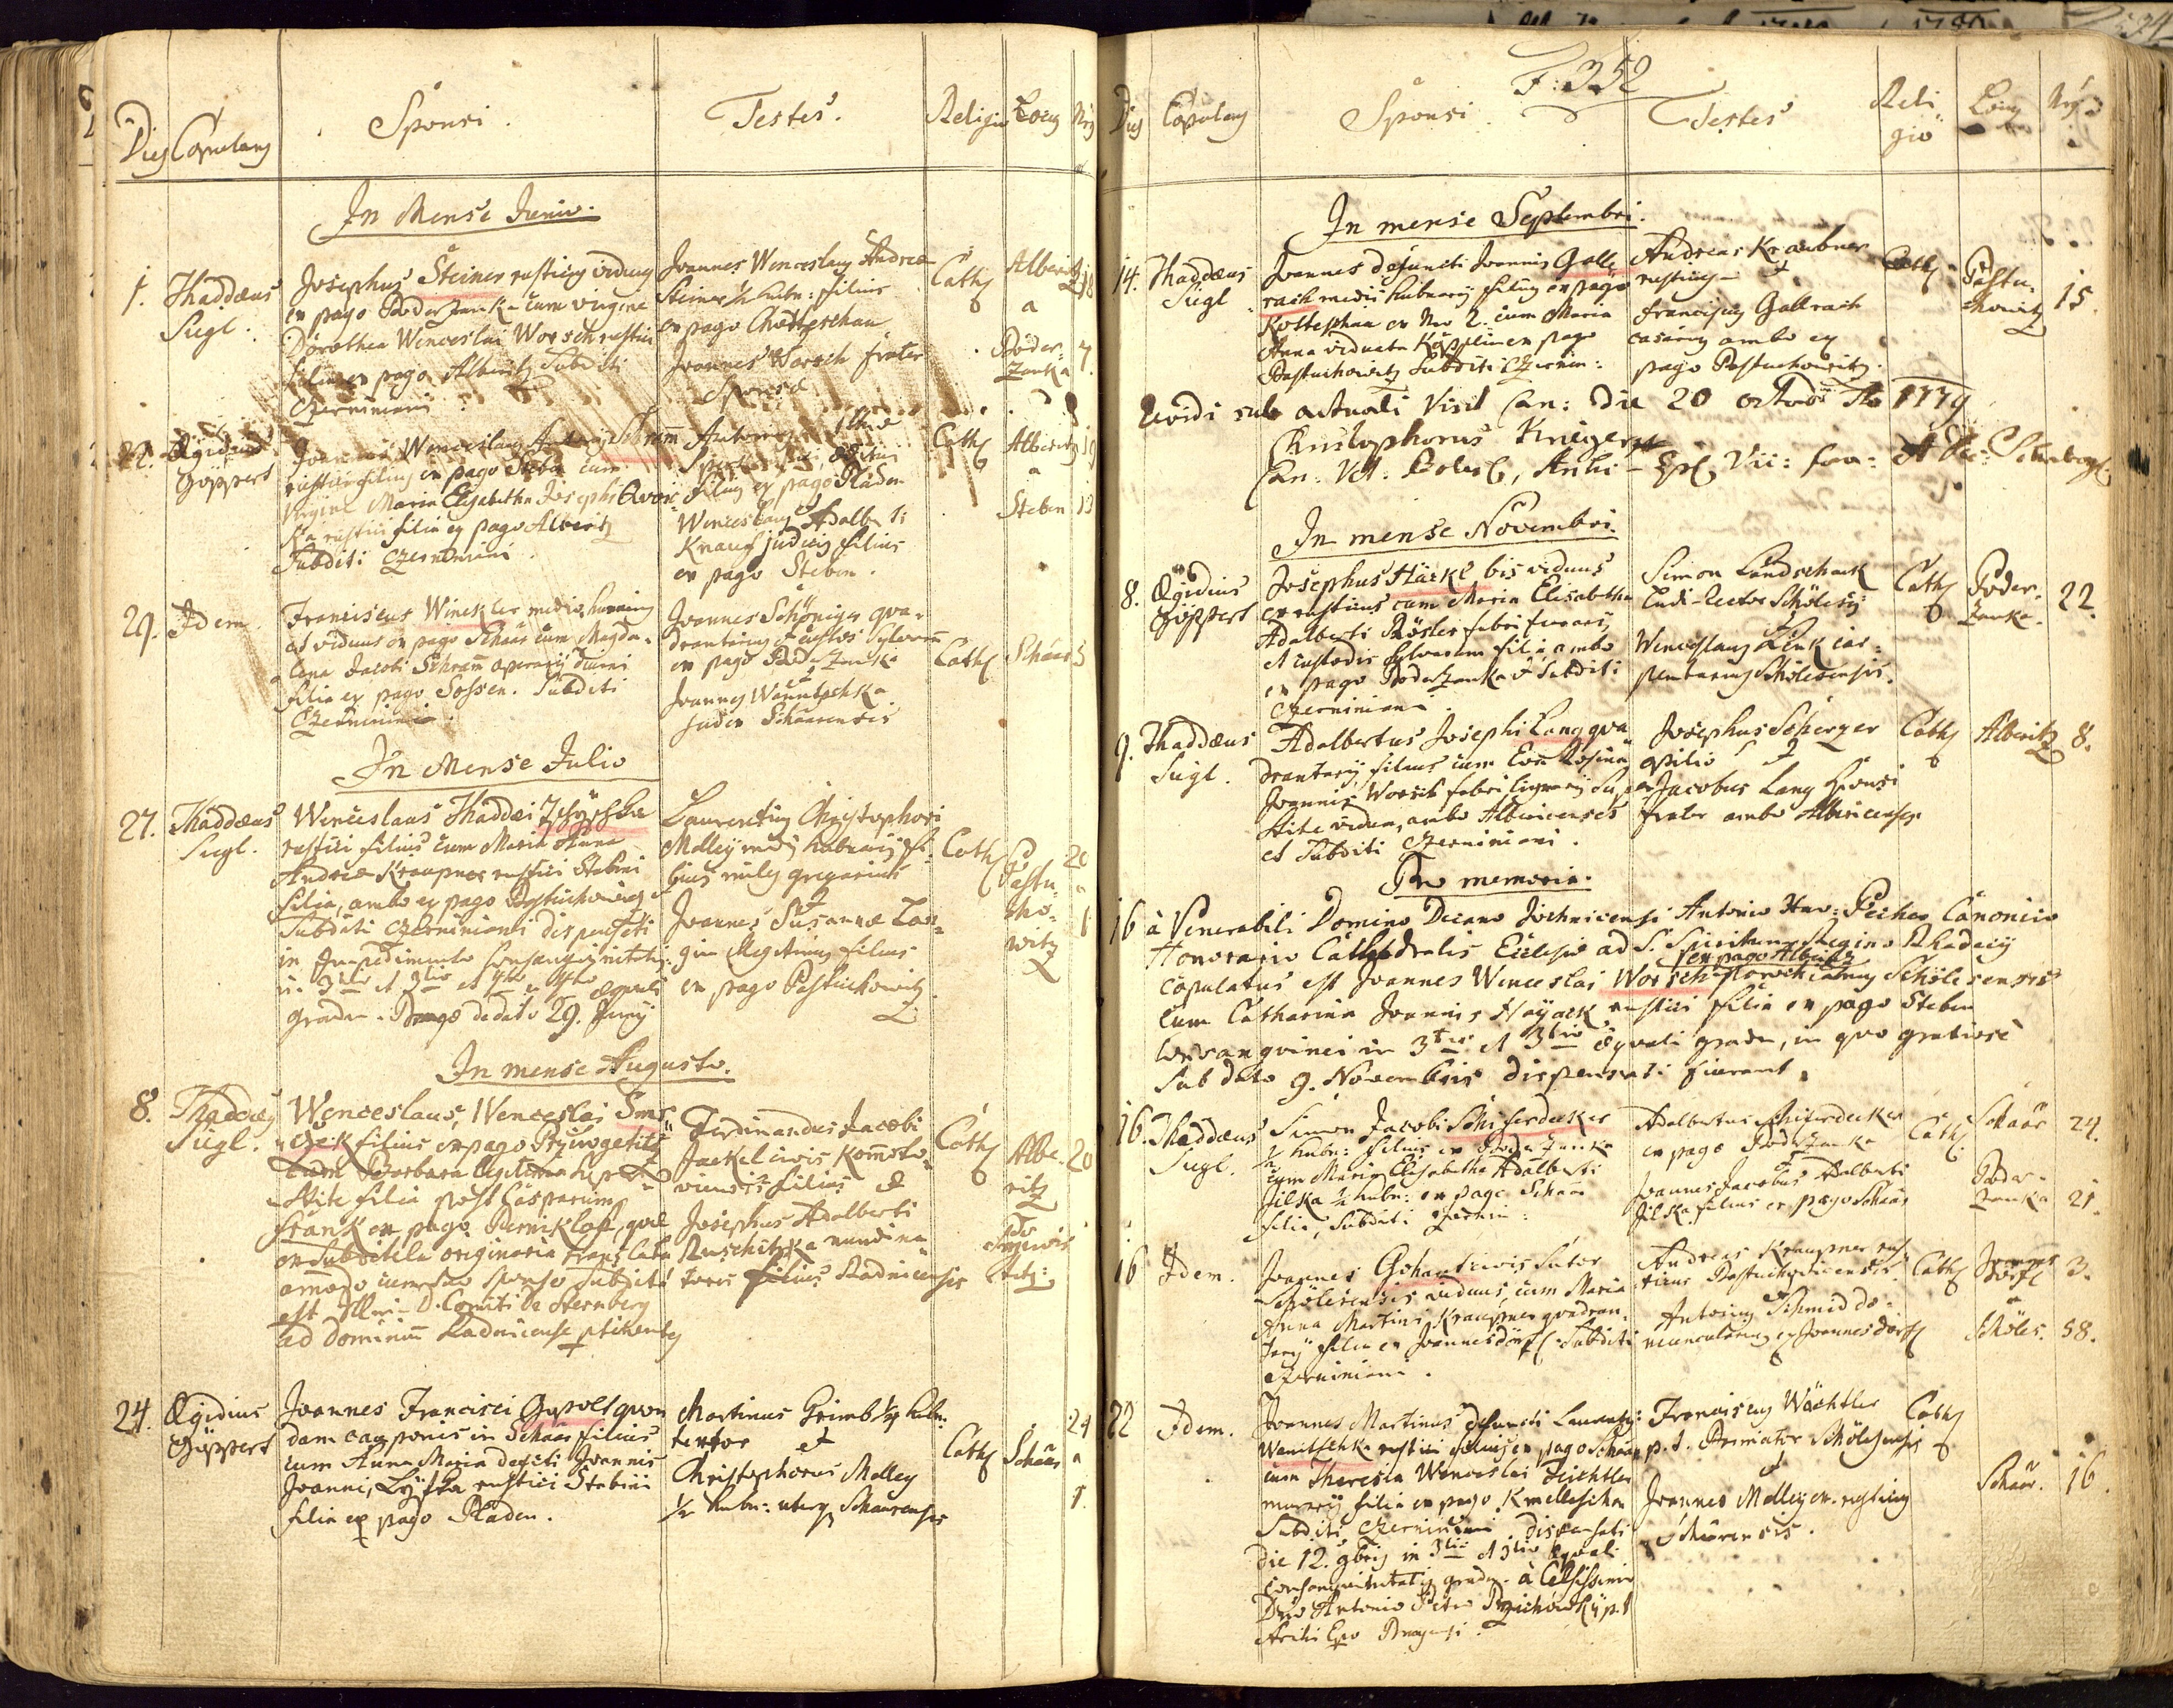 Dies Copulans Sponsi. Testes. Religio Locus Nrus
In Mense Junio.
1. Thaddæus Siegl.
Josephus Steiner rusticus viduus
ex pago Poderzanka cum virgine
Dorothea Wenceslai Worsch rustici
filia ex pago Alberitz Subditi
Czerniniani
Joannes Wenceslaus Andreæ
Steiner 1/2 hubn: filius
ex pago Chotteschau
Joannes Worsch frater
Sponsæ
Cath
Alberitz 18
a
Poder-
zanka 7.
22. Ægidius Göppert
Wenceslaus
rustici filius ex pago Steben cum
virgine Maria Elisabetha Josephi
rustici filia ex pago Alberitz
Subditi Czerniniani
Antonius
filius ex pago Raden
Wenceslaus Adalberti
Knauf judicis filius
ex pago Steben.
Cath
Alberitz 19
a
Steben 13
29. Idem.
Franciscus Winckler
et viduus ex pago Schaar cum Magda-
lena Jacobi Schram operarij
filia ex pago Sossen. Subditi
Czerniniani.
Joannes Schöniger qva-
drantarius et custos sylvarum
ex pago Poderzanka
et
Joannes Wanitschka
judex Schaarensis
Cath Schaar 5
In Mense Julio
27. Thaddæus Siegl.
Wenceslaus Thaddæi
rustici filius cum Maria Anna
Andreæ Kraupner rustici Stabini
filia, ambo ex pago Pastuchowitz
Subditi Czerniniani dispensati
in Impedimento consangvinitatis
in 3tio et 3tio et 4to æquali
gradu. Pragæ de dato 29. Junij
Laurentius Christophori
Molley medij hubnarij fi-
lius miles gregarius
et
Joannes Susannæ
filius
ex pago Pastuchowitz.
Cath
Pastu-
cho-
witz
20
a
1
In mense Augusto.
8. Thaddæus Siegl.
Wenceslaus, Wenceslai
filius ex pago
cum Barbara legitima
-stite filia post Casparum
Frank ex pago Perniklof, quæ
ex Subditela originaria translata
amodo cum suo sponso subdita
est Illmi D. Comiti de Sternberg
ad dominium Radnicense
Ferdinandus Jacobi
Jaekel civis Komoto-
viensis filius et
Josephus Adalberti
Ruschitzka nundina-
toris filius Radnicensis
Cath
Albe-
ritz
20
24. Ægidius Göppert
Joannes Francisci quon-
dam cauponis in Schaar filius
cum Anna Maria defuncti Joannis
rustici Stabini
filia ex pago Raden.
Martinus Grimb 1/4 hubn:
textor et
Christophorus Molley
1/2 hubn: uterq Schaarensis
Cath Schaar
24
a
1.
F: 352
Dies Copulans Sponsi. Testes Religio Locus Nrus
In mense Septembri.
14. Thaddæus Siegl
Joannes defuncti Joannis Gall-
rach medii hubnarij filius ex pago
Kotteschau ex Nro 2. cum Maria
Anna viduata Köpplin ex pago
Pastuchowitz Subditi Czernin:
Andreas Kraubner
rusticus et
Franciscus Gallrach
casarius ambo ex
pago Pastuchowitz.
Cath
Pastu-
chowitz 15.
Revidi sub actuali Visit Can: Die 20 octobris Ao 1779
Christophorus Krieger
In mense Novembri.
8. Ægidius Göppert
Josephus Hackl bis viduus
ex rusticus cum Maria Elisabetha
Adalberti Rösler fabri ferrarij
et custodis sylvarum filia, ambo
ex pago Poderzanka Subditi
Czerniniani.
Simon Landschack
Ludi-Rector Schölesij
et
Wenceslaus Link car-
pentarius Schölesensis.
Cath Poder-
zanka. 22.
9. Thaddæus Siegl.
Adalbertus Josephi Lang qva-
drantarij filius cum Eva Rosina
Joannis Worsch fabri lignarij super-
stite vidua, ambo Albericenses
et Subditi Czerniniani.
Josephus Scherzer
opilio et
Jacobus Lang Sponsi
frater ambo Albericenses
Cath Alberitz 8.
Pro memoria.
16 à Venerabili Domino Decano Jechnicensi Antonio Pecher Canonico
Honorario Cathedralis Ecclesiæ ad S. Spiritum Regino Rhadecij
ex pago Alberitz
copulatus est Joannes Wenceslai Worsch Schölesensis
cum Catharina Joannis Hayack, rustici filia ex pago Steben
consangvinei in 3tio et 3tio æqvali gradu, in quo gratiose
Sub dato 9. Novembris dispensati fuerant.
16. Thaddæus Siegl.
Simon Jacobi Schieferdecker
1/2 hubn: filius ex Poderzanka
cum Maria Elisabetha Adalberti
Jilka 1/2 hubn: ex pago Schaar
filia, Subditi Czernin:
Adalbertus Schieferdecker
ex pago Poderzanka
et
Joannes Jacobus Adalberti
Jilka filius ex pago Schaar
Cath
Schaar 24.
Poder-
zanka 21.
16 Idem.
Joannes civis Sutor
Schölesensis viduus, cum Maria
Anna Martini Kraupner qvadran-
tarij filia ex Joannesdörfl Subditi
Czerniniani.
Andreas Kraupner rus-
ticus Pastuchovicensis
et
Antonius Schmid do-
ex Joannesdörfl
Cath Joannes
dörfl 3.
a
Schöles. 58.
22 Idem.
Joannes Martinus defuncti Laurentij
Wanitschka rustici filius ex pago Schaar
cum Theresia Wenceslai Feichtler
murarij filia ex pago Kmelleschen
Subditi Czerniniani. dispensati
die 12. 9bris in 3tio et 3tio æqvali
consangvinitatis gradu. à Celsissimo
Dno Antonio Petro Przichowsky p.t.
Archi Epo Pragensi.
Franciscus Wächtler
p.t. Schölesensis
et
Joannes Molley rusticus
Schaarensis.
Cath
Schaar. 16.